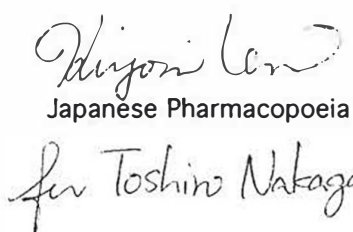 Japanese Pharmacopoeia
for Toshiro Nakaga